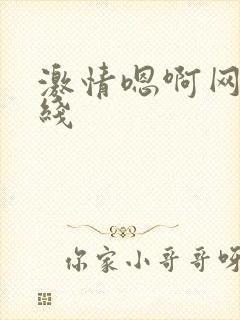 激情嗯啊网
线
你家小哥哥呀